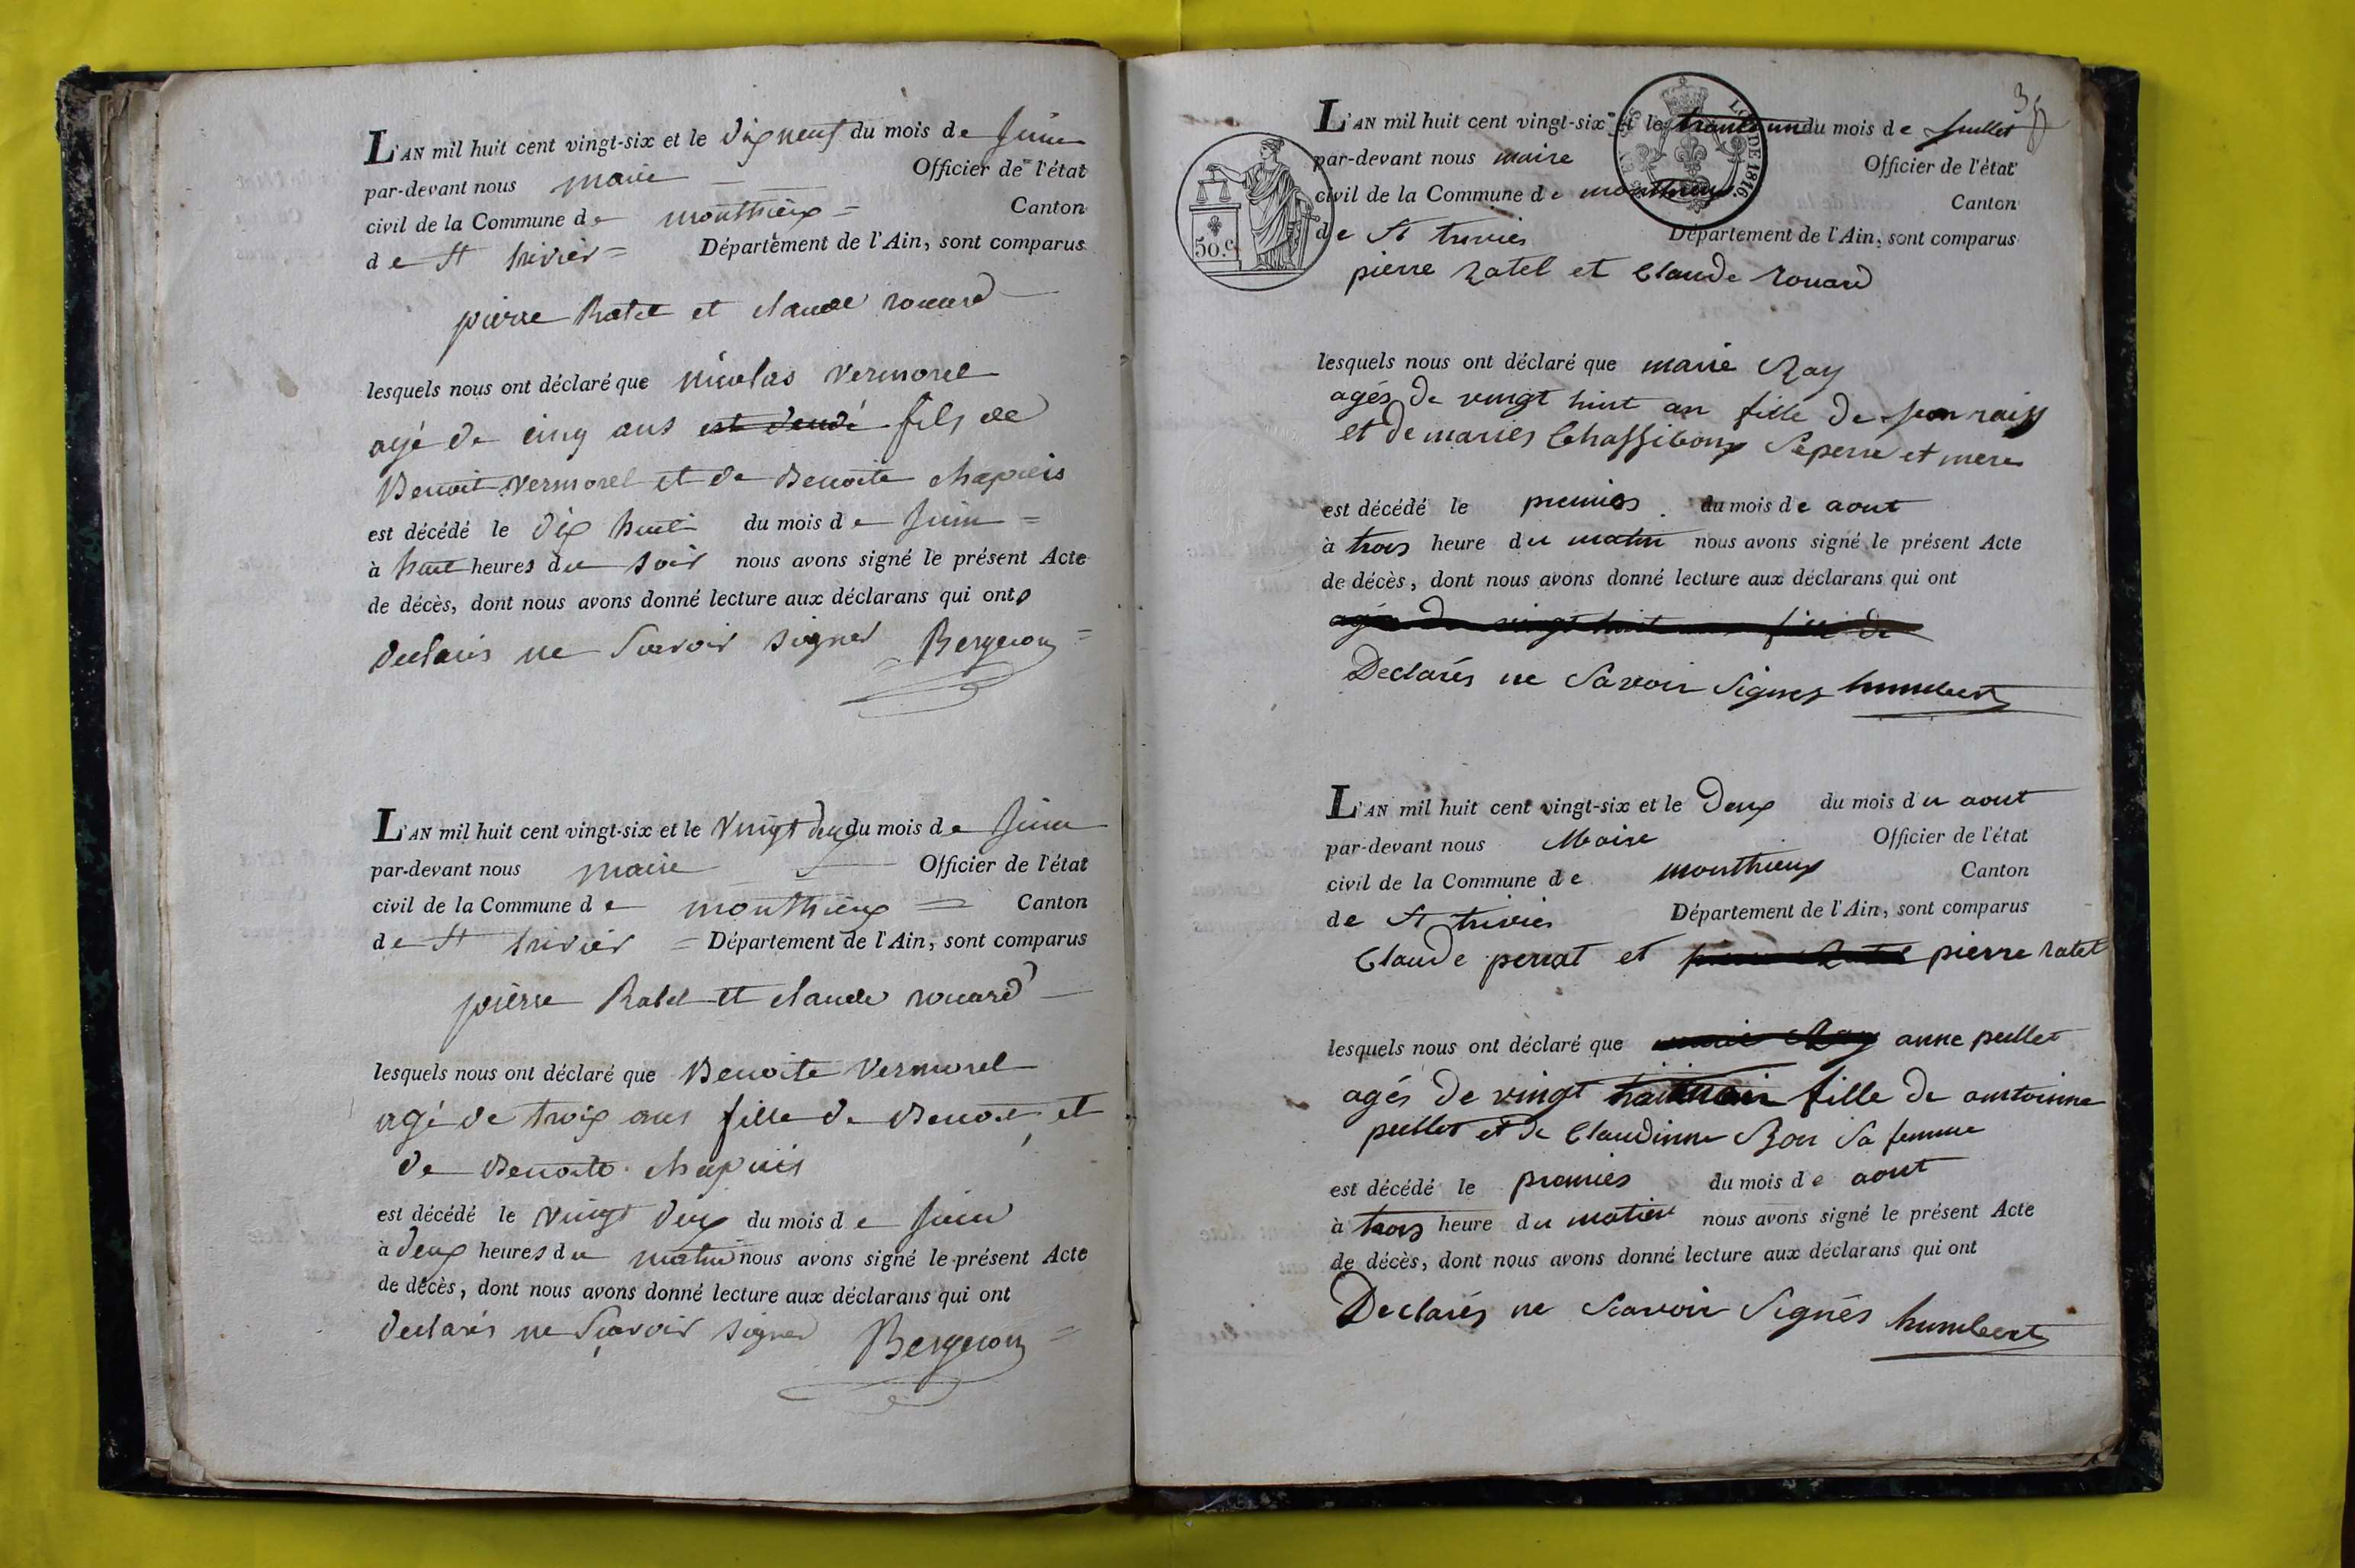 L'AN mil huit cent vingt-six et le dix neuf du mois de Juin
par-devant nous maire Officier de l'état
civil de la Commune de monthieux = Canton
de St trivier = Département de l'Ain, sont comparus
pierre Ratel et claude rouard
lesquels nous ont déclaré que nicolas vermorel
agé de cinq ans est décédé fils de
Benoit vermorel et de Benoite chapuis
est décédé le dix huit du mois de Juin =
à huit heures du soir nous avons signé le présent Acte
de décès, dont nous avons donné lecture aux déclarans qui ont
declarés ne Scavoir signer Bergeron =
L'AN mil huit cent vingt-six et le vingt deux du mois de Juin
par-devant nous maire Officier de l'état
civil de la Commune de monthieux = Canton
de St trivier = Département de l'Ain, sont comparus
pierre Ratel et claude rouard
lesquels nous ont déclaré que Benoite vermorel
agé de trois ans fille de Benoit et
de Benoite chapuis
est décédé le vingt deux du mois de Juin
à deux heures du matin nous avons signé le présent Acte
de décès, dont nous avons donné lecture aux déclarans qui ont
declarés ne Scavoir signer Bergeron =
L'AN mil huit cent vingt-six et le trante un du mois de Juillet
par-devant nous maire Officier de l'état
civil de la Commune de monthieux Canton
de St trivier Département de l'Ain, sont comparus
50.c
DE 1816
pierre ratel et Claude rouard
lesquels nous ont déclaré que marie Ray
agés de vingt huit an fille de Jean
et de maries Sé perre et mere
est décédé le premier du mois de aout
à trois heure du matin nous avons signé le présent Acte
de décès, dont nous avons donné lecture aux déclarans qui ont
agée de vingt huit fille de
Declarés ne Savoir Signer humbert
L'AN mil huit cent vingt-six et le Deux du mois du aout
par-devant nous Maire Officier de l'état
civil de la Commune de monthieux Canton
de St trivier Département de l'Ain, sont comparus
Claude perrat et pierre Ratel pierre ratel
lesquels nous ont déclaré que marie Ray anne peillet
agés de vingt fille de antoinne
peillet et de Claudinne Bon Sa femme
est décédé le premier du mois de aout
à trois heure du matin nous avons signé le présent Acte
de décès, dont nous avons donné lecture aux déclarans qui ont
Declarés ne Scavoir Signés humbert